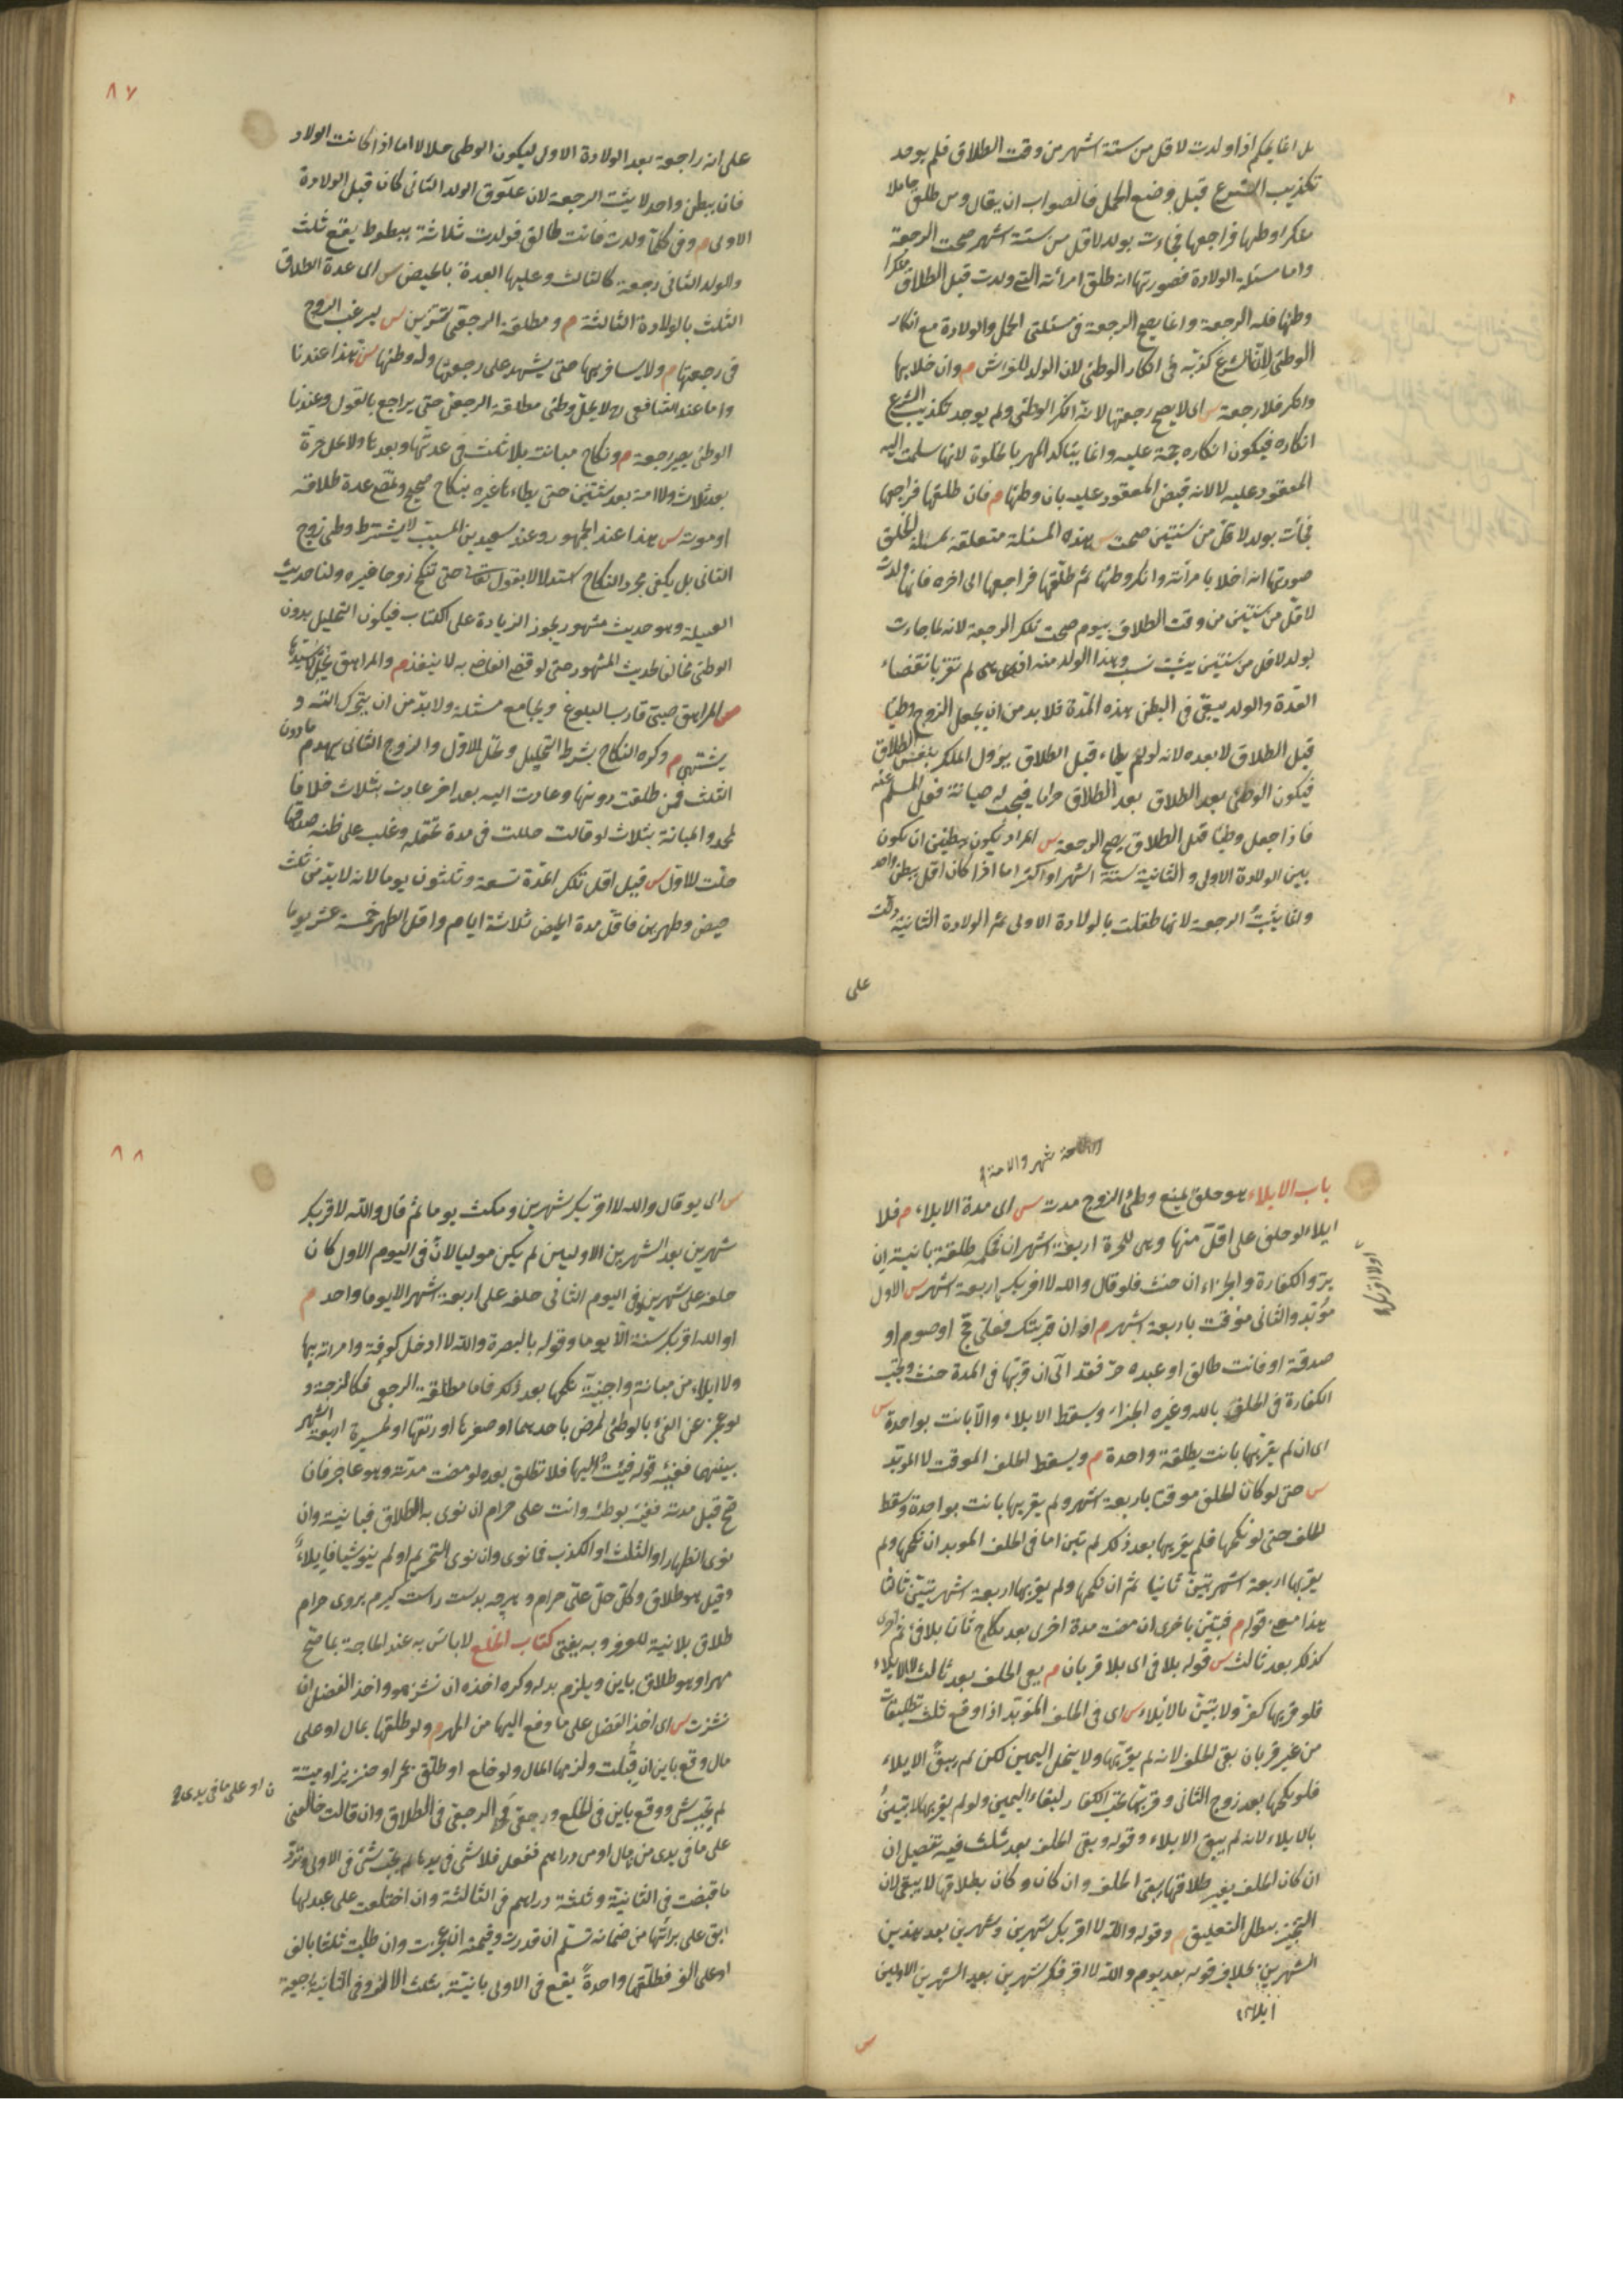 بل انما يحكم اذا ولدت لاقل من ستة اشهر من وقت الطلاق فلم يوجد
تكذيب الشرع قبل وضع الحمل فالصواب ان يقال ومن طلق حاملا
منكرا وطئها فراجعها فجاءت بولد لاقل من ستة اشهر صحت الرجعة
واما مسئلة الولادة فصورتها انه طلق امرأته التي ولدت قبل الطلاق منكرا
وطئها فله الرجعة وانما يصح الرجعة في مسئلتي الحمل والولادة مع انكار
الوطئ لان الشرع كذبه في انكار الوطئ لان الولد للفراش م وان خلا بها
وانكر فلا رجعة س اى لا يصح رجعتها لانه انكر الوطئ ولم يوجد تكذيب الشرع
انكاره فيكون انكاره حجة عليه وانما يتاكد المهر بالخلوة لانها سلمت اليه
المعقود عليه لا لانه قبض المعقود عليه بان وطئها م فان طلقها فراجعها
فجائت بولد لاقل من سنتين صحت س هذه المسئلة متعلقة بمسئلة الخلق
صورتها انه اخلا بامرأته وانكر وطئها ثم طلقها فراجعها الى اخره فانها ولدت
لاقل من سنتين من وقت الطلاق بيوم صحت تلك الرجعة لانه لما جاءت
بولد لاقل من سنتين يثبت نسب وهذا الولد منه اذ هى لم تقر بانقضاء
العدة والولد يبقى في البطن هذه المدة فلا بد من ان يجعل الزوج وطيا
قبل الطلاق لا بعده لانه لو لم يطاء قبل الطلاق يزول الملك بنفس الطلاق
فيكون الوطئ بعد الطلاق بعد الطلاق حراما فيجب له صيانة فعل المسلم عنه
فاذا جعل وطيا قبل الطلاق يصح الرجعة س المراد بكون ببطنين ان يكون
بين الولادة الاولى والثانية ستة اشهر او اكثر اما اذا كان اقل ببطن واحد
وانما يثبت الرجعة لانها طلقت بالولادة الاولى ثم الولادة الثانية دلت
على
٨٧
على انه راجعه بعد الولادة الاول ليكون الوطئ حلالا اما اذا كانت الولاد
فان ببطن واحد لا يثبت الرجعة لان علوق الولد الثانى كان قبل الولادة
الاولى م وفى كلما ولدت فانت طالق فولدت ثلاثة ببطوط يقع ثلث
والولد الثانى رجعة كالثالث وعليها العدة بالحيض س اى عدة الطلاق
الثلث بالولادة الثالثة م ومطلقة الرجعى تتزين س ليرغب الزوج
فى رجعتها م ولا يسافر بها حتى يشهد على رجعتها وله وطئها س هذا عندنا
واما عند الشافعى رح لا يحل وطئ مطلقة الرجعى حتى يراجع بالقول وعندنا
الوطئ يصير رجعة م ونكاح مبانته بلا ثلث فى عدتها وبعدها ولا على حرة
بعد ثلاث ولا امة بعد ثنتين حتى يطاءها غيره بنكاح صحيح وتمضى عدة طلاقه
او موته س هذا عند الجمهور وعند سعيد بن المسيب لا يشترط وطى زوج
الثانى بل يكفى مجرد النكاح استدلالا بقوله تعالى حتى تنكح زوجا غيره ولنا حديث
العسيلة وهو حديث مشهور يجوز الزيادة على الكتاب فيكون التحليل بدون
الوطئ مخالفا لحديث المشهور حتى لو قضى القاضى به لا ينفذ م والمراهق يحل لا سيدها
س المراهق صبى قارب البلوغ ويجامع مثله ولا بد من ان يتحرك الته و
يشتهى م وكره النكاح بشرط التحليل وتحل للاول والزوج الثانى يهدم ما دون
الثلث فمن طلقت دونها وعادت اليه بعد اخر عادت بثلاث خلافا
لمحمد والمبانة بثلاث لو قالت حللت فى مدة تحتمله وغلب على ظنه صدقها
حلت للاول س قيل اقل تلك المدة تسعة وثلثون يوما لانه لا بد من ثلث
حيض وطهرين فاقل مدة الحيض ثلاثة ايام واقل الطهر خمسة عشر يوما
باب الايلاء هو حلف يمنع وطئ الزوج مدته س اى مدة الايلاء م فلا
ايلاء لو حلف على اقل منها وهى للحرة اربعة اشهر ان حكمه طلقة بائنة ان
بر والكفارة والجزاء ان حنث فلو قال والله لا اقربك اربعة اشهر س الاول
مؤبد والثانى موقت باربعة اشهر م او ان قربتك فعلى حج او صوم او
صدقة او فانت طالق او عبده حر فقد آلى ان قربها فى المدة حنث ويجب
الكفارة فى الحلف بالله وغيره الجزاء ويسقط الايلاء والا بانت بواحدة س
اى ان لم يقربها بانت بطلقة واحدة م ويسقط الحلف الموقت لا المؤبد
س حتى لو كان الحلف موقتا باربعة اشهر ولم يقربها بانت بواحدة وسقط
الحلف حتى لو نكحها فلم يقربها بعد ذلك لم تبن اما فى الحلف الموبد ان نكحها ولم
يقربها اربعة اشهر تبين ثانيا ثم ان نكحها ولم يقربها اربعة اشهر تبين ثالثا
هذا معنى قوله م فتبين باخرى ان مضت مدة اخرى بعد نكاح ثان بلا فئ ثم اخرى
كذلك بعد ثالث س قوله بلا فئ اى بلا قربان م بقى الحلف بعد ثالث لا الايلاء
فلو قربها كفر ولا تبين بالايلاء س اى فى الحلف المؤبد اذا وقع ثلث تطليقات
من غير قربان بقى الحلف لانه لم يقربها ولا ينحل اليمين لكن لم يبق الايلاء
فلو نكحها بعد زوج الثانى وقربها تجب الكفار لبقاء اليمين ولو لم يقربها لا تبين
بالايلاء لانه لم يبق الايلاء وقوله وبقى الحلف بعد ثلث فيه تفصيل ان
ان كان الحلف بغير طلاقها يبقى الحلف وان كان وكان بطلاقها لا يبقى لان
التنجيز يبطل التعليق م وقوله والله لا اقربك شهرين وشهرين بعد هذين
الشهرين بخلاف قوله بعد يوم والله لا اقربك شهرين بعد الشهرين الاولين
ايلاء
س
٨٨
س اى لو قال والله لا اقربك شهرين ومكث يوما ثم قال والله لا اقربك
شهرين بعد الشهرين الاوليين لم يكن موليا لان فى اليوم الاول كان
حلفه على شهرين وفى اليوم الثانى حلفه على اربعة اشهر الا يوما واحد م
او الله اقربك سنة الا يوما وقوله بالبصرة والله لا ادخل كوفة وامرأته بها
ولا ايلاء من مبانته واجنبية نكحها بعد ذلك فاما مطلقة الرجعى فكالزوجة و
لو عجز عن الفئ بالوطئ لمرض باحدهما او صغرها او رتقها او لمسيرة اربعة اشهر
بينهما ففيئه قوله فئت اليها فلا تطلق بعده لو مضت مدته وهو عاجز فان
صح قبل مدته ففيئه بوطئه وانت على حرام ان نوى به الطلاق فبائنة وان
نوى الظهار او الثلث او الكذب فما نوى وان نوى التحريم او لم ينو شيئا فايلاء
وقيل هو طلاق وكل حل على حرام وهرچه بدست راست كيرم بروى حرام
طلاق بلا نية للعرف وبه يفتى كتاب الخلع لا باس به عند الحاجة بما صح
مهرا وهو طلاق باين ويلزم بدله وكره اخذه ان نشز هو واخذ الفضل ان
نشزت س اى اخذ الفضل على ما دفع اليها من المهر م ولو طلقها بمال او على
مال وقع باين ان قبلت ولزمها المال ولو خلع او طلق بخمر او خنزير او ميتة
لم يجب شئ ووقع باين فى الخلع ورجعى فى الطلاق وان قالت خالعنى
على ما فى يدى من مال او من دراهم ففعل فلا شئ فى يدها لم يجب شئ فى الاولى وترد
ما قبضت فى الثانية وثلثة دراهم فى الثالثة وان اختلعت على عبد لها
ابق على برائتها من ضمانه تسلم ان قدرت وقيمته ان عجزت وان طلبت ثلثا بالف
او على الف فطلقها واحدة يقع فى الاولى بائنة بثلث الالف وفى الثانية رجعية
ن او على ما فى يدى